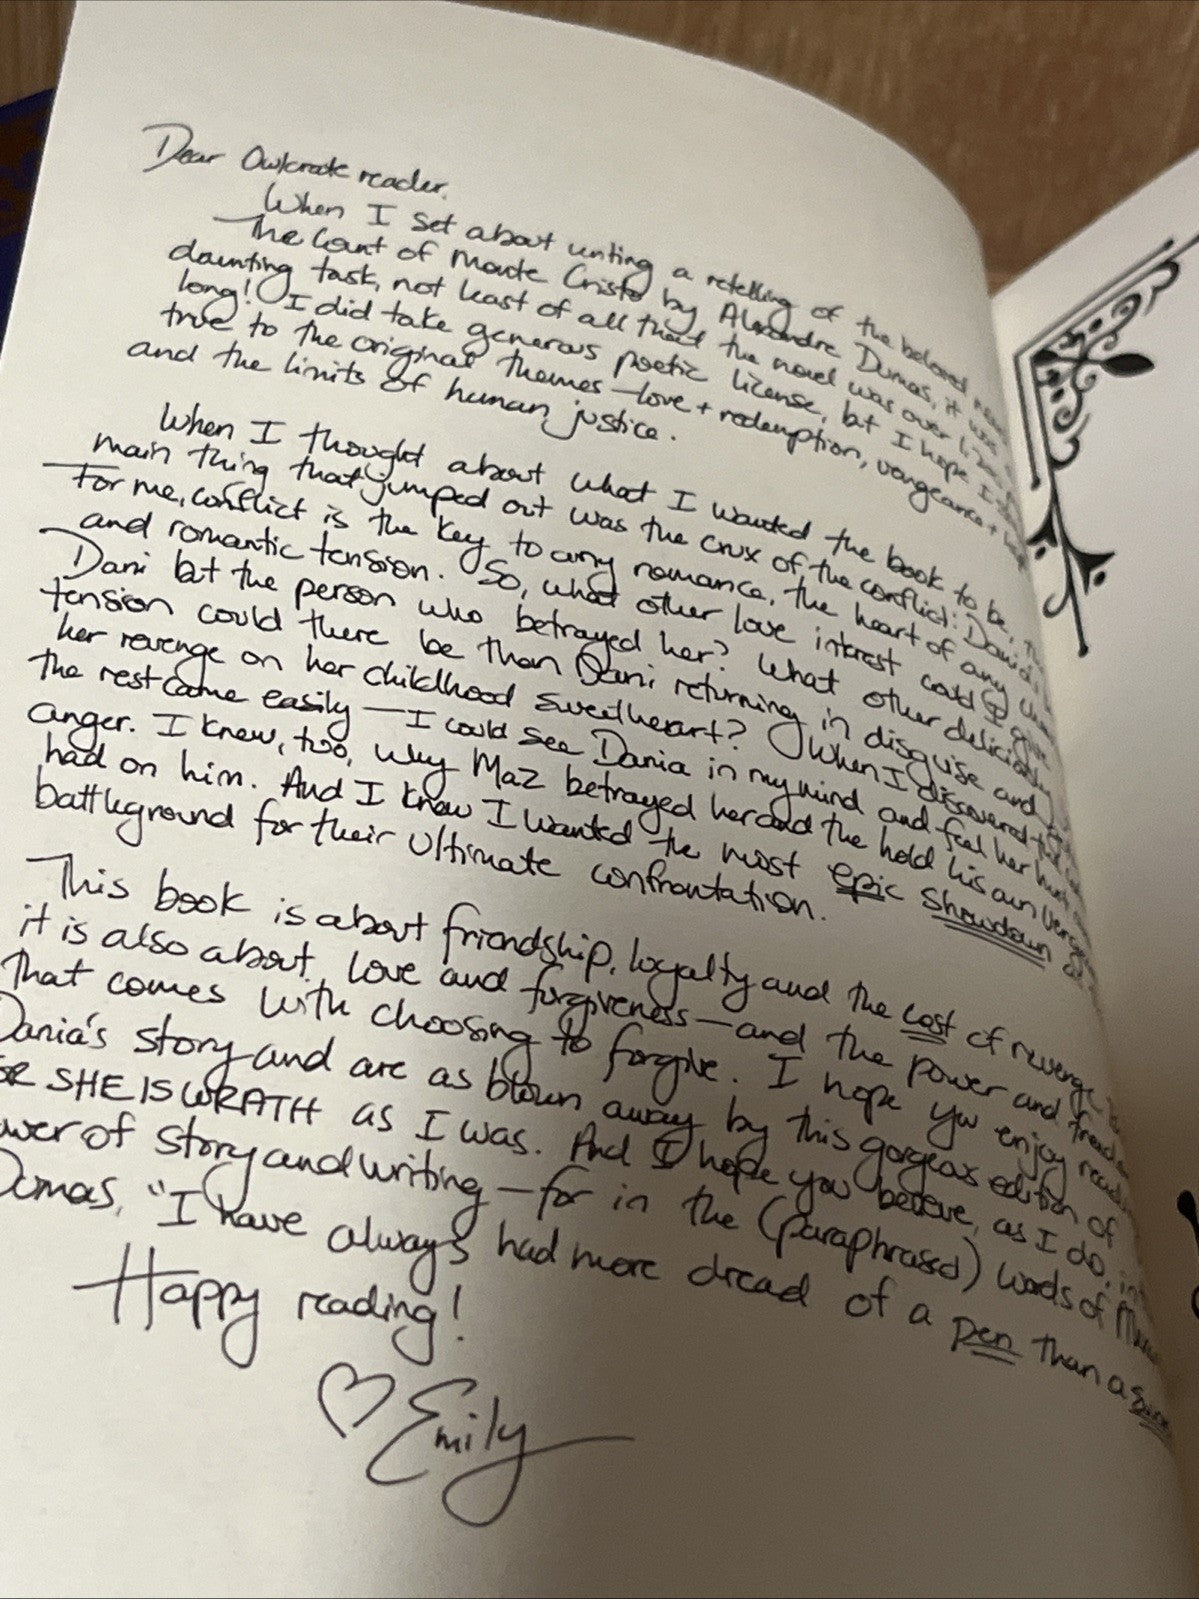 Dear Owlcrate reader,
When I set about writing a retelling of the beloved
The Count of Monte Cristo by Alexandre Dumas, it was
daunting task, not least of all that the novel was over
long! I did take generous poetic license, but I hope I
true to the original themes—love + redemption, vengeance +
and the limits of human justice.
When I thought about what I wanted the book to be,
main thing that jumped out was the crux of the conflict: Dania
For me, conflict is the key to any romance, the heart of any
and romantic tension. So, what other love interest could I give
Dani but the person who betrayed her? What other deliciously
tension could there be than Dani returning in disguise and
her revenge on her childhood sweetheart? When I discovered
the rest came easily—I could see Dania in my mind and feel her hurt
anger. I knew, too, why Maz betrayed her and the hold his own
had on him. And I knew I wanted the most epic showdown
battleground for their ultimate confrontation.
This book is about friendship, loyalty and the cost of revenge
it is also about love and forgiveness—and the power and
that comes with choosing to forgive. I hope you enjoy
Dania's story and are as blown away by this gorgeous edition of
SHE IS WRATH as I was. And I hope you believe, as I do, in
of story and writing—for in the (paraphrased) words of
Dumas, "I have always had more dread of a pen than a
Happy reading!
♡ Emily